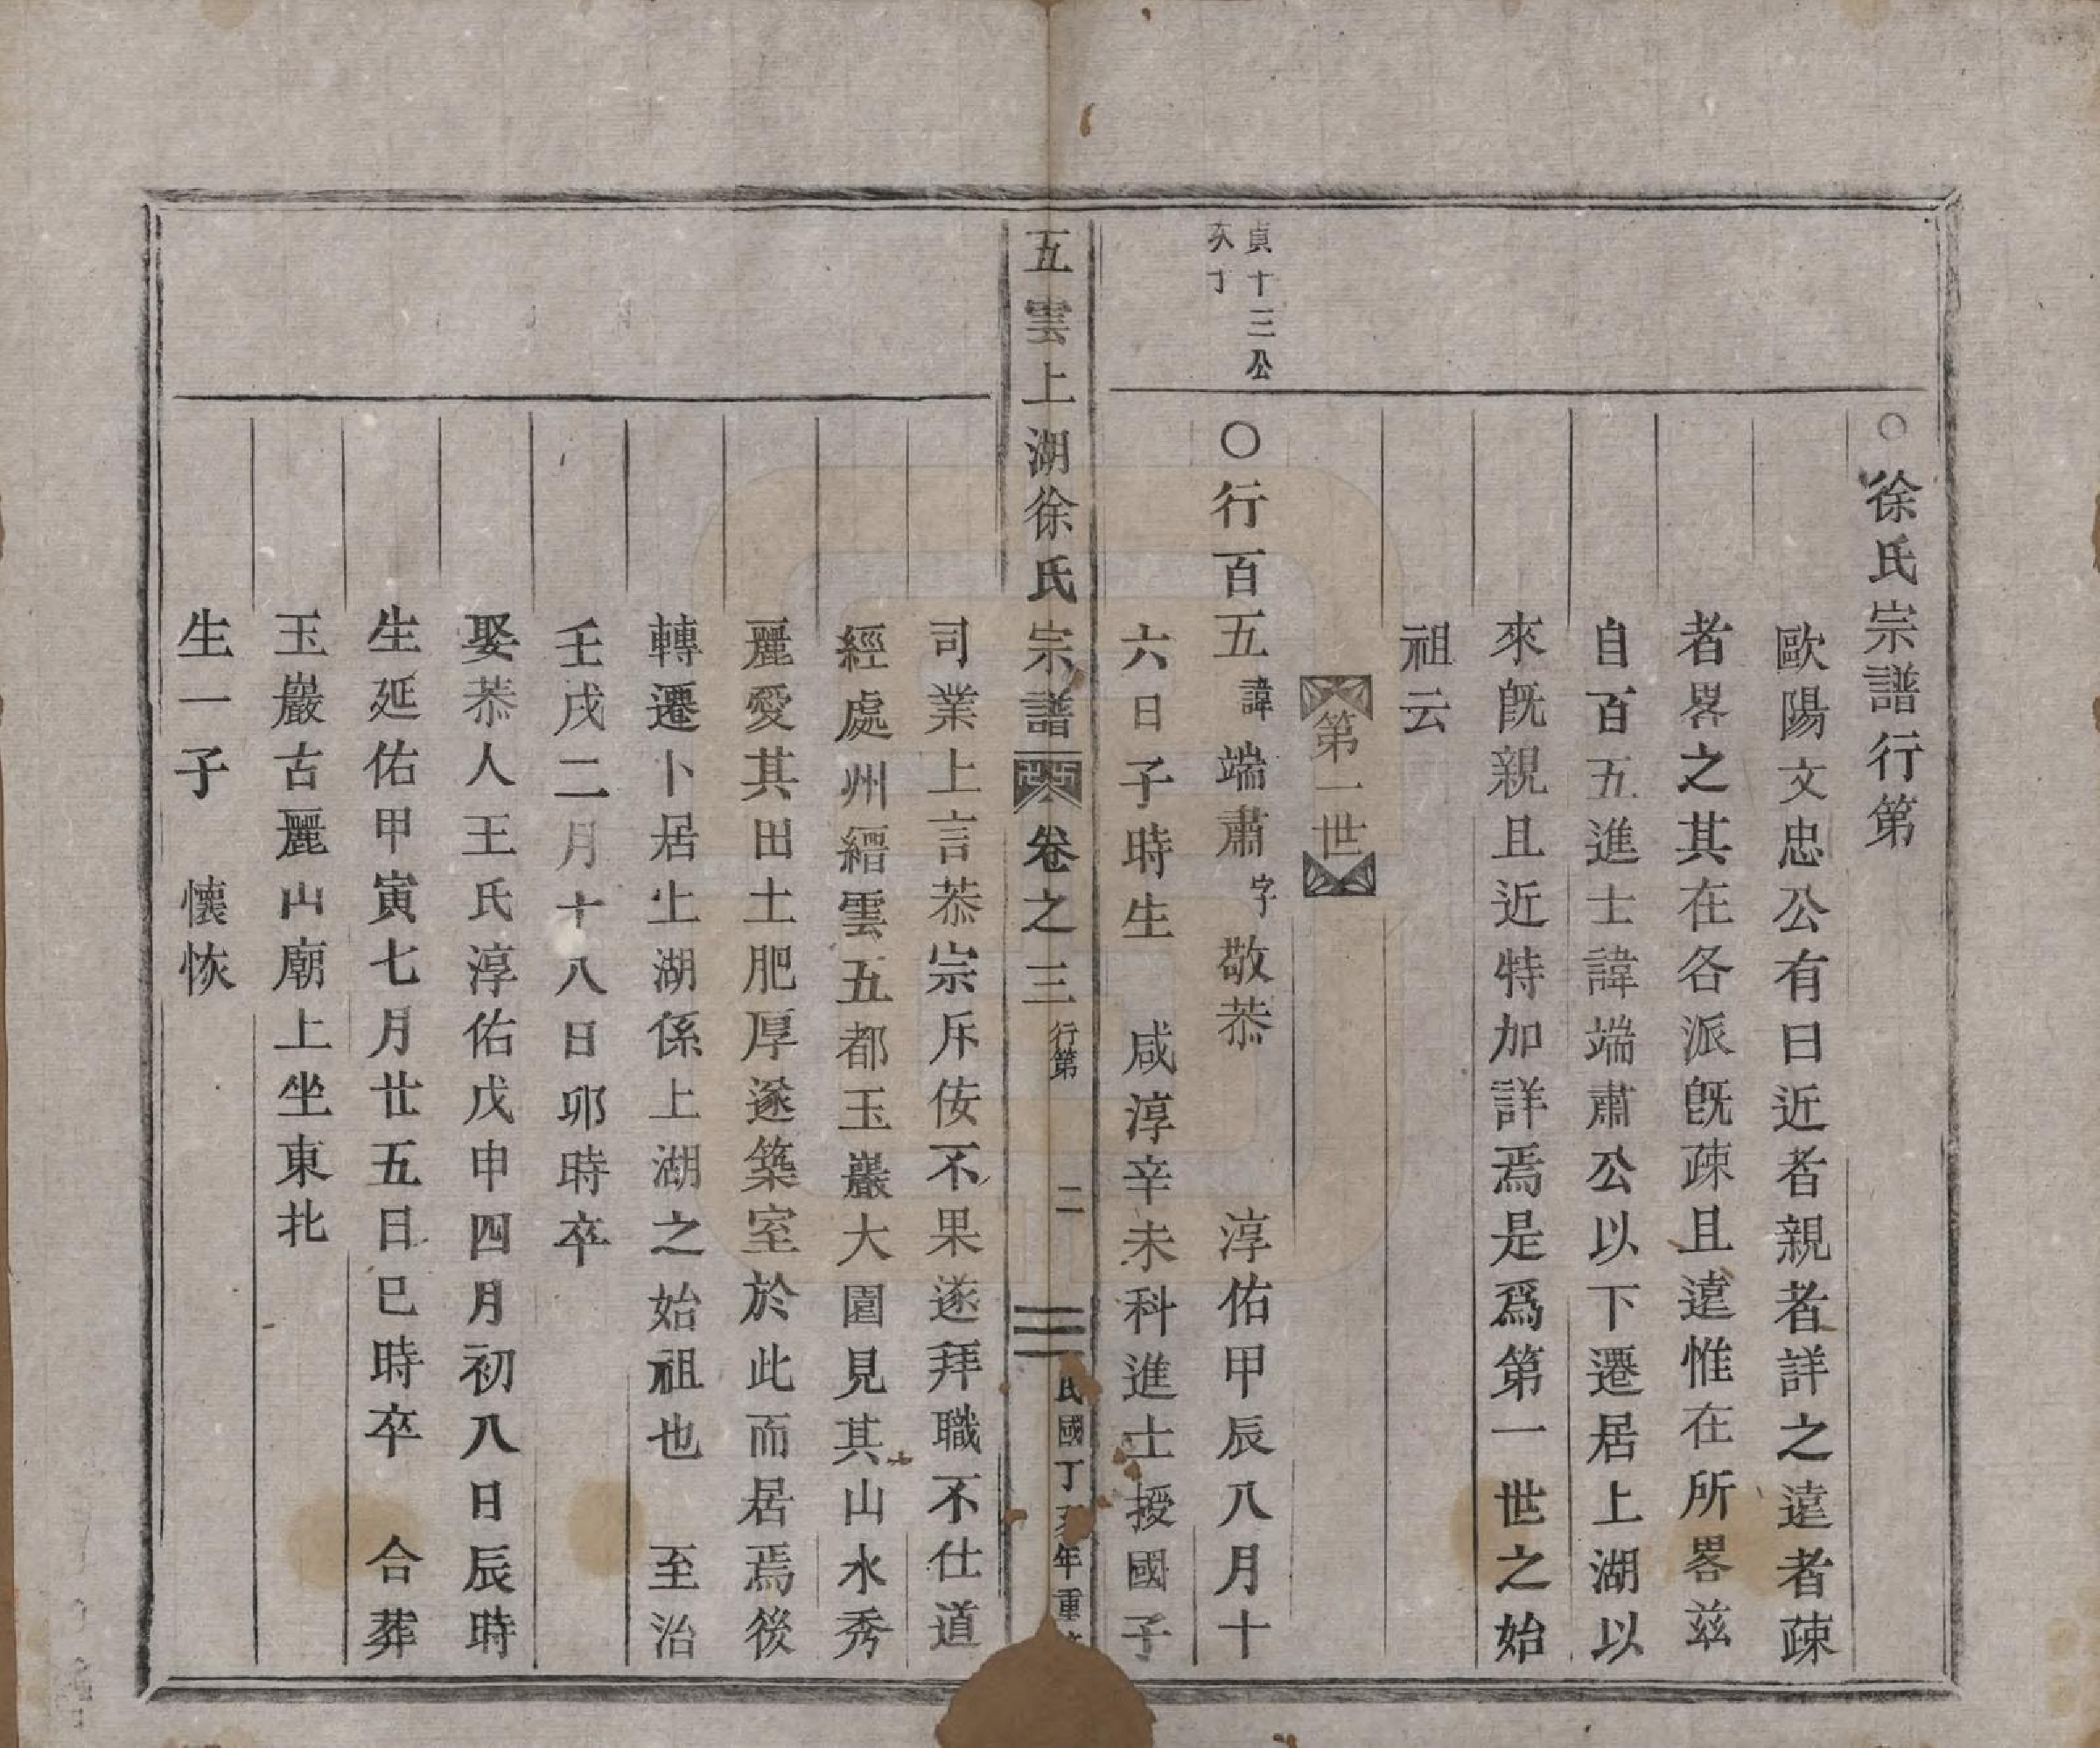 ○徐氏宗譜行第
歐陽文忠公有曰近者親者詳之遠者疎
者畧之其在各派旣疎且遠惟在所畧茲
自百五進士諱端肅公以下遷居上湖以
來旣親且近特加詳焉是爲第一世之始
祖云
第一世
貞十三公
次丁
○行百五諱端肅字敬恭 淳佑甲辰八月十
六日子時生 咸淳辛未科進士授國子
五雲上湖徐氏宗譜 卷之三 行第 二 民國丁亥年重
司業上言恭宗斥侫不果遂拜職不仕道
經處州縉雲五都玉巖大園見其山水秀
麗愛其田土肥厚遂築室於此而居焉後
轉遷卜居上湖係上湖之始祖也 至治
壬戌二月十八日卯時卒
娶恭人王氏淳佑戊申四月初八日辰時
生延佑甲寅七月廿五日巳時卒 合葬
玉巖古麗山廟上坐東北
生一子 懷恢